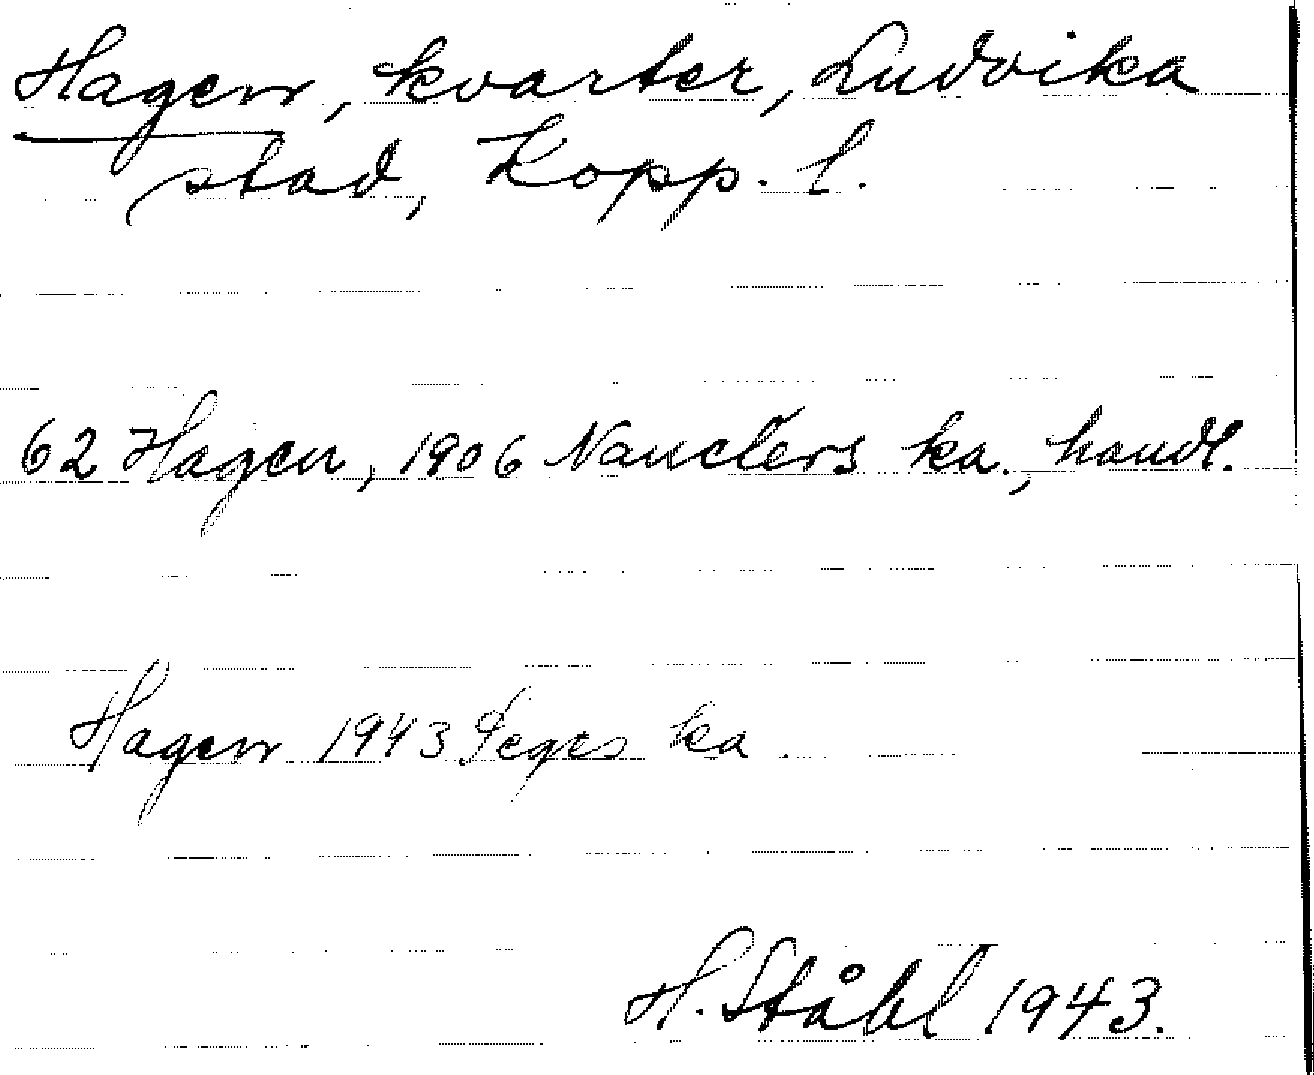 Hagen, kvarter, Ludvika
stad, Kopp. l.
62 Hagen, 1906 Nauclers ka., handl.
Hagen 1943 Leges ka.
H. Ståhl 1943.